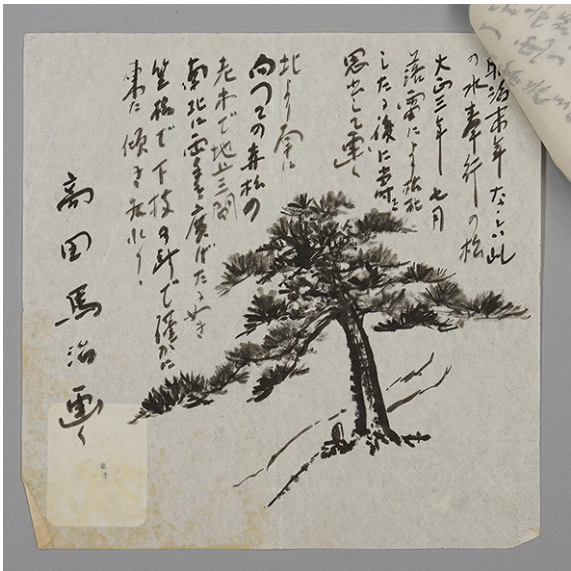 明治末年
の水奉行の松
大正三年 七月
落雷により枯死
したる後に
思出して画く
北より南に
向つての赤松の
老木で地上三間
南北に両手を広げたる如き
笠松で下枝の斗で僅かに
東に傾き在れり。
高田馬治画く